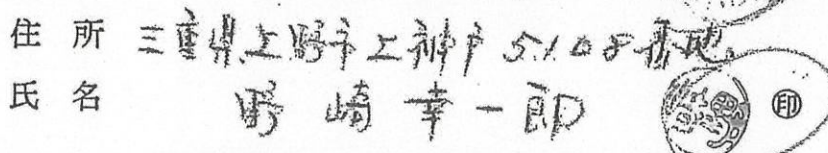 住所 三重県上野市上神戸5108番地
氏名 野崎幸一郎 ㊞